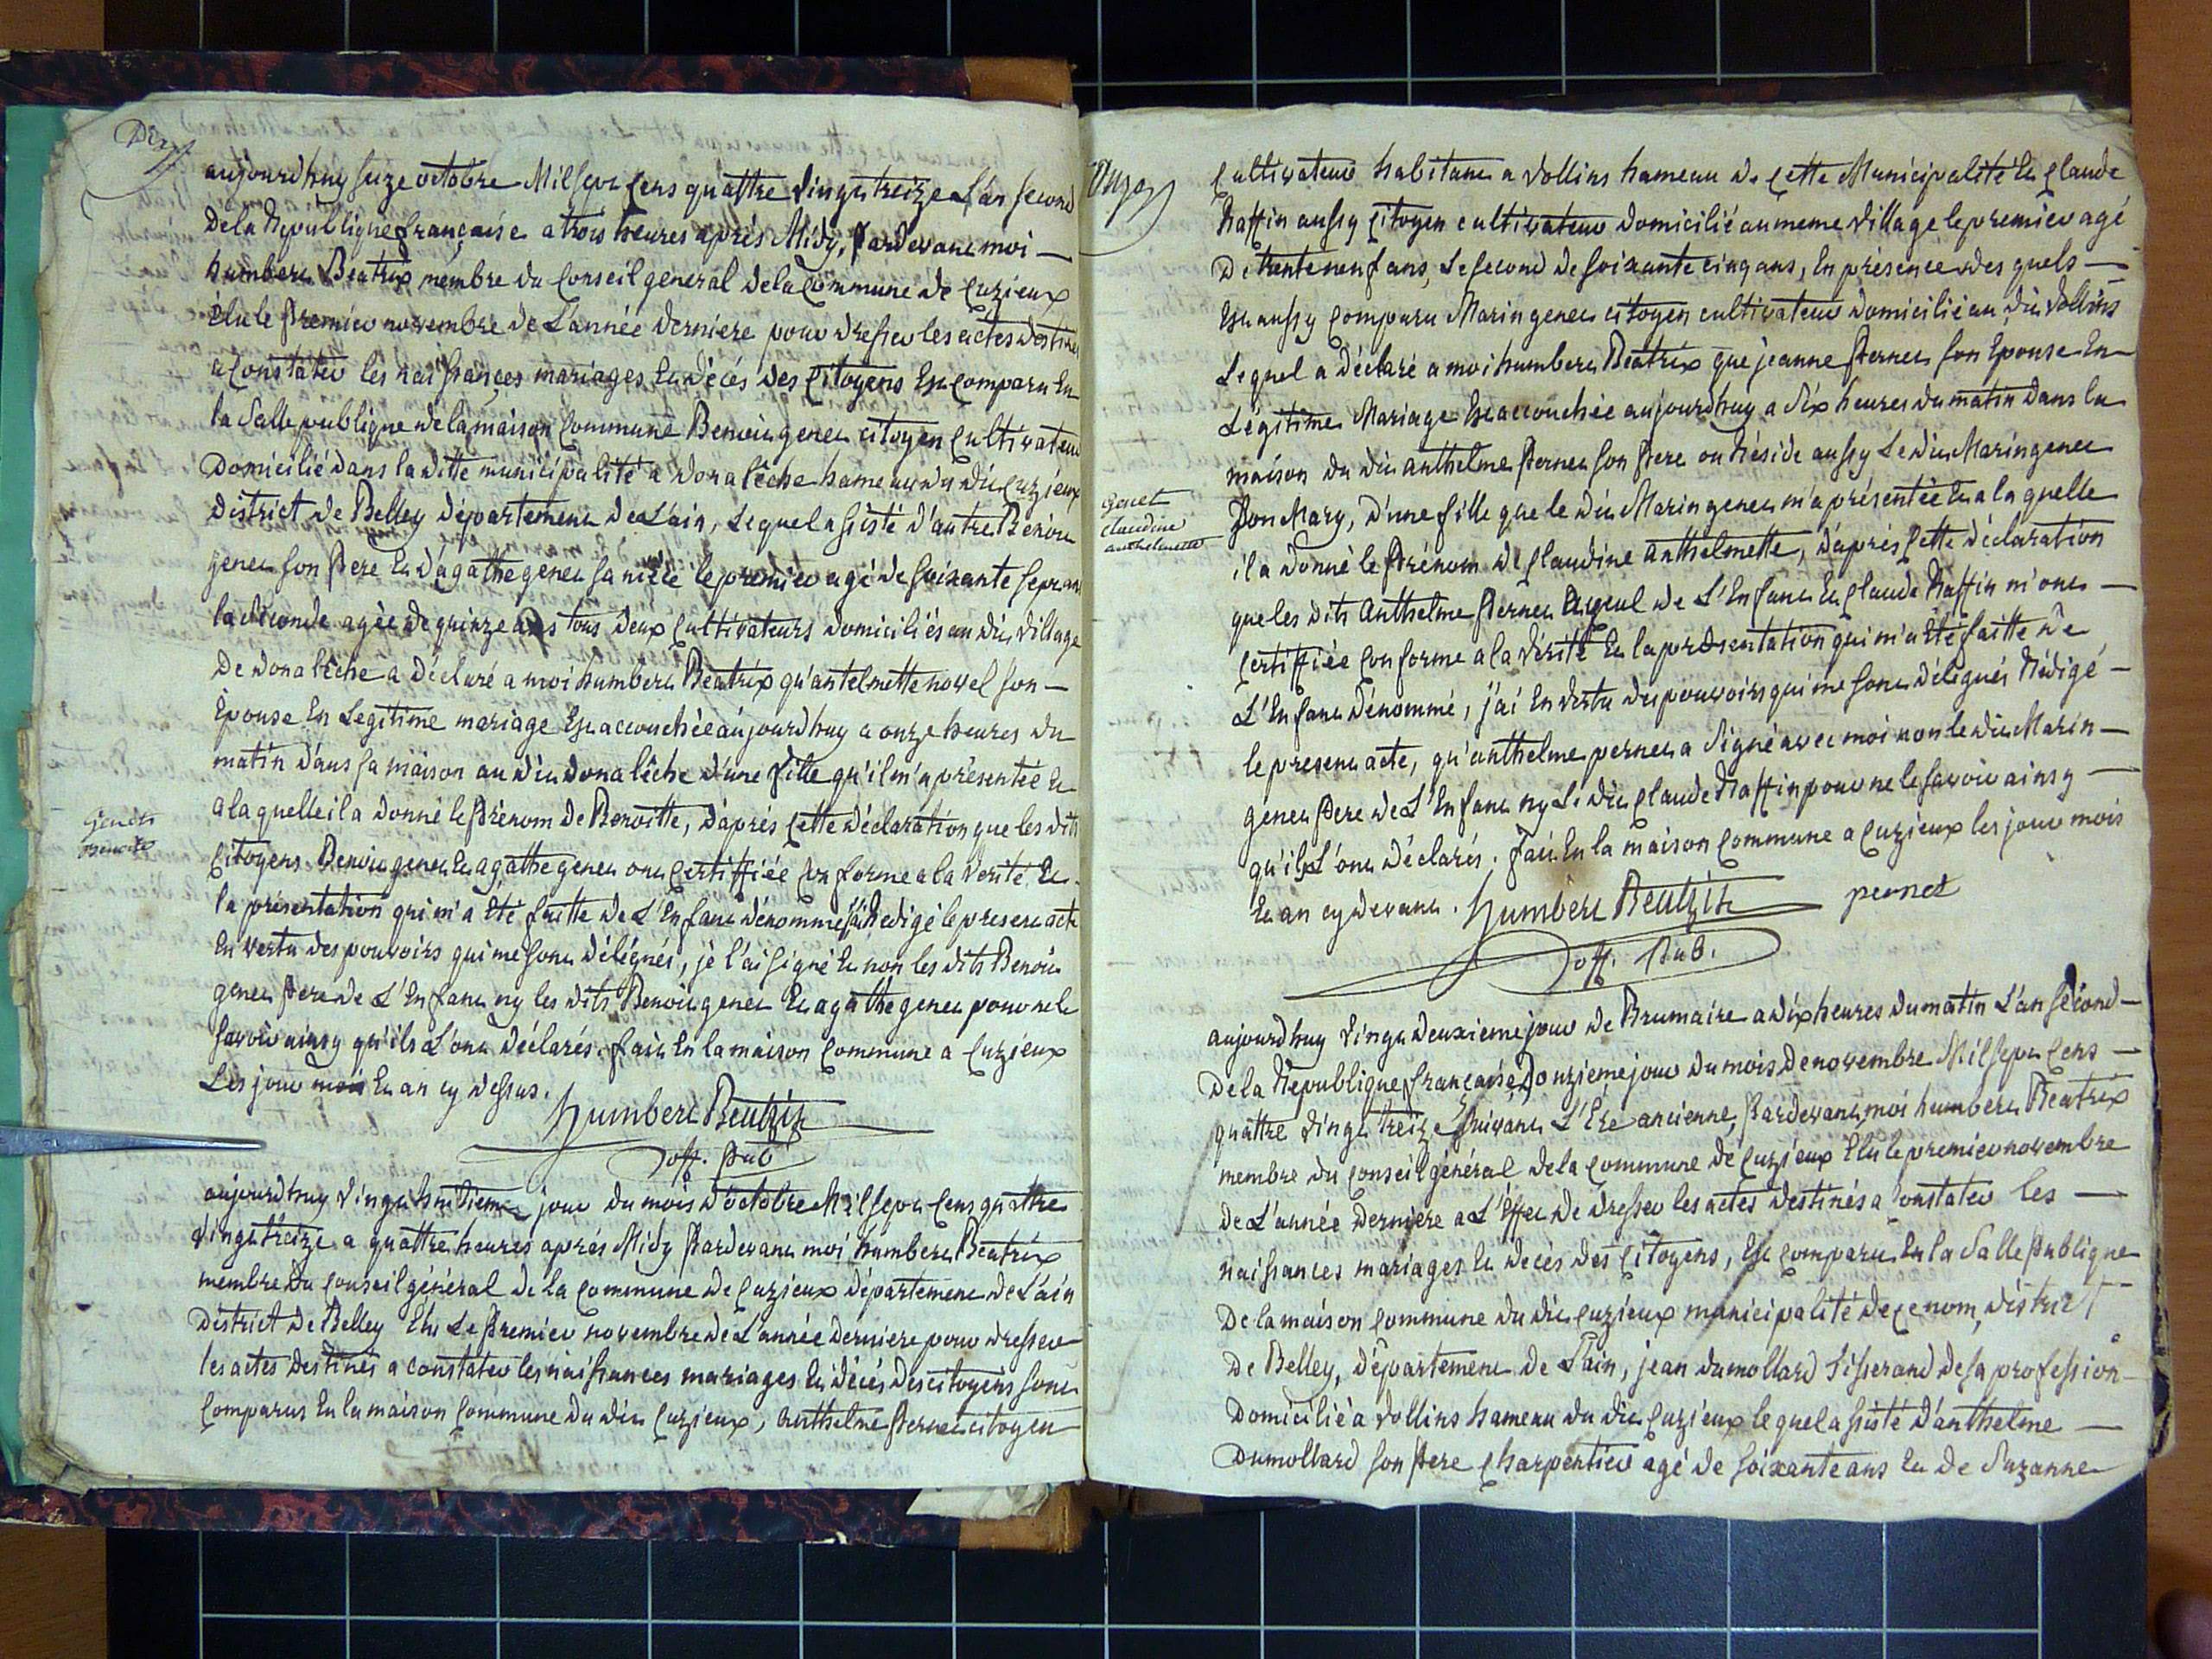 Dix
aujourdhuy seize octobre Mil sept cens quattre vingt treize L'an second
De la Republique française a trois heures après Midy, Pardevant moi —
humbert Béatrix membre du Conseil general de la Commune de Cuzieux
élu le Premier novembre de L'année derniere pour dresser les actes destinés
a Constater les naissances mariages Et décés des Citoyens Est comparu En
la Salle publique de la maison Commune Benoit genet citoyen Cultivateur
Domicilié dans la ditte municipalité a donalêche hameau du dit Cuzieux
District de Belley Département de L'ain, Lequel assisté d'autre Benoit
genet son Pere Et d'agathe genet sa niéce le premier agé de soixante sept ans
la Seconde agée de quinze ans tous deux Cultivateurs domiciliés au dit village
De donalêche a déclaré a moi humbert Béatrix qu'antelmette novel son —
Epouse En Legitime mariage Est accouchée aujourdhuy a onze heures du
matin dans sa maison au dit donalêche d'une fille qu'il m'a présentée Et
a laquelle il a donné le Prénom de Benoitte, d'aprés Cette déclaration que les dits
Genets
Benoite
Citoyens Benoit genet Et agathe genet ont Certiffiée Conforme a la Verité Et
la présentation qui m'a Eté faitte de L'Enfant dénommé j'ai Redigé le present acte
En vertu des pouvoirs qui me sont délégués, je l'ai signé Et non les dits Benoit
genet Pere de L'Enfant ny les dits Benoit genet Et agathe genet pour ne le
savoir ainsy qu'ils L'ont déclarés. fait En la maison Commune a Cuzieux
Les jour mois Et an cy dessus.
Humbert Beatrix
off. Pub
aujourdhuy vingt huitieme jour du mois d'octobre Mil sept Cens quattre
vingt treize a quattre heures aprés Midy Pardevant moi humbert Béatrix
membre du Conseil général de la Commune de Cuzieux département de L'ain
District de Belley Elu Le Premier novembre de L'année derniere pour dresser
les actes destinés a constater les naissances mariages Et décés des citoyens sont
Comparus En la maison Commune du dit Cuzieux, anthelme Pernet citoyen
Onze
Cultivateur habitant a vollins hameau de Cette Municipalité Et Claude
Raffin aussy Citoyen cultivateur domicilié au meme village le premier agé
De trente neuf ans, Le second de soixante cinq ans, En présence des quels —
Est aussy Comparu Marin genet citoyen cultivateur domicilié au dit vollins
Lequel a déclaré a moi humbert Béatrix que jeanne Pernet son Epouse En
Légitime Mariage Est accouchée aujourdhuy a Six heures du matin Dans la
maison du dit anthelme Pernet son Pere ou Réside aussy Le dit Marin genet
Genet
claudine
anthelmette
Son Mary, D'une fille que le dit Marin genet m'a présentée Et a la quelle
il a donné le Prénom de Claudine Anthelmette, d'aprés Cette déclaration
que les dits Anthelme Pernet Ayeul de L'Enfant Et Claude Raffin m'ont —
Certiffiée Conforme a la Vérité Et la présentation qui m'a Eté faitte de
L'Enfant Dénommé, j'ai En vertu des pouvoirs qui me sont délégués Rédigé —
le present acte, qu'anthelme pernet a Signé avec moi non le dit Marin —
genet Pere de L'Enfant ny Le dit Claude Raffin pour ne le savoir ainsy —
qu'ils L'ont déclarés. fait En la maison Commune a Cuzieux les jour mois
Et an cy devant. Humbert Beatrix pernet
off. Pub.
aujourdhuy vingt deuxieme jour de Brumaire a dix heures du matin L'an second —
De la Republique française, Douzieme jour du mois de novembre Mil sept Cens —
quattre vingt treize Suivant L'Ere ancienne, Pardevant moi humbert Béatrix
membre du Conseil général de la Commune de Cuzieux Elu le premier novembre
de L'année Derniere a L'Effet de dresser les actes destinés a Constater les —
naissances mariages Et decés des Citoyens, Est Comparu En la Salle Publique
De la maison Commune du dit Cuzieux municipalité de ce nom, district
De Belley, département de L'ain, jean dumollard Tisserand de sa profession
Domicilié a vollins hameau du dit Cuzieux lequel assisté d'anthelme —
Dumollard son Pere Charpentier agé de soixante ans Et de Suzanne